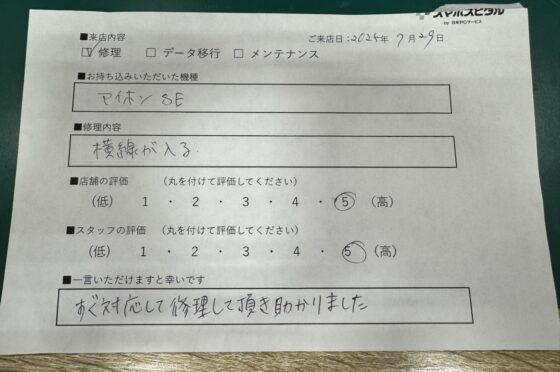 スマホスピタル
by 日本PCサービス
■来店内容
ご来店日:2025年 7月29日
☑ 修理 □ データ移行 □ メンテナンス
■お持ち込みいただいた機種
アイホン SE
■修理内容
横線が入る.
■店舗の評価 (丸を付けて評価してください)
(低) 1 ・ 2 ・ 3 ・ 4 ・ 5 (高)
■スタッフの評価 (丸を付けて評価してください)
(低) 1 ・ 2 ・ 3 ・ 4 ・ 5 (高)
■一言いただけますと幸いです
すぐ対応して修理して頂き助かりました